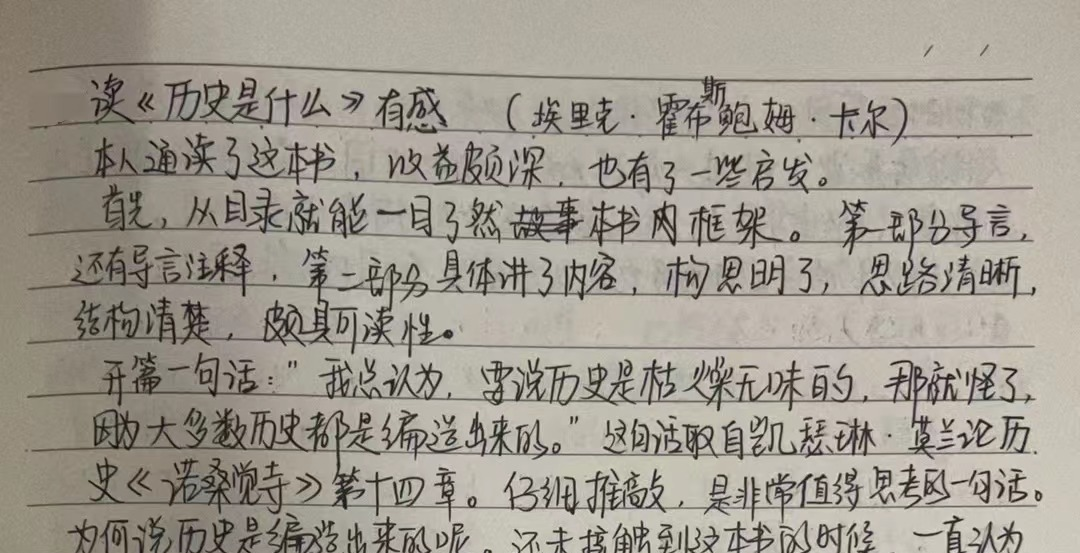 读《历史是什么》有感 （埃里克·霍布斯鲍姆·卡尔）
本人通读了这本书，收益颇深，也有了一些启发。
首先，从目录就能一目了然故事本书内框架。第一部分导言，
还有导言注释，第二部分具体讲了内容，构思明了，思路清晰，
结构清楚，颇具可读性。
开篇一句话："我总认为，要说历史是枯燥无味的，那就怪了，
因为大多数历史都是编造出来的。"这句话取自凯瑟琳·莫兰论历
史《诺桑觉寺》第十四章。仔细推敲，是非常值得思考的一句话。
为何说历史是编造出来的呢。还未接触到这本书的时候，一直认为